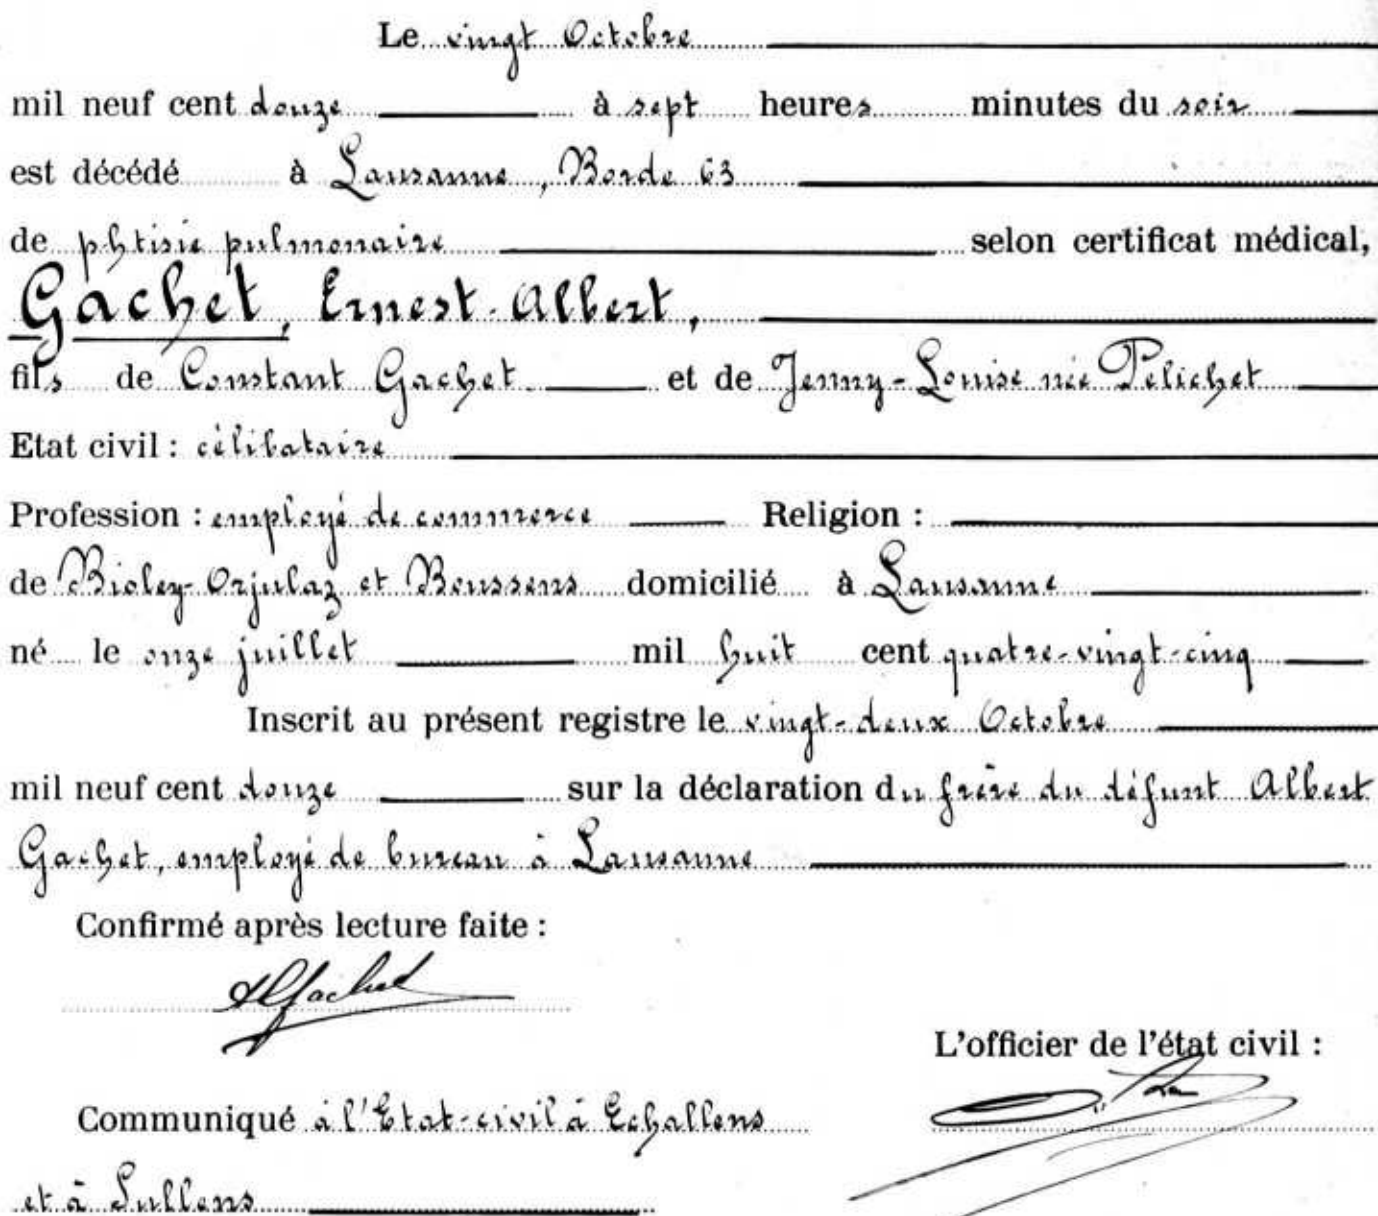 Le vingt Octobre
mil neuf cent douze à sept heures minutes du soir
est décédé à Lausanne, Borde 63
de phtisie pulmonaire selon certificat médical,
Gachet, Ernest-Albert,
fils de Constant Gachet et de Jenny-Louise née Pelichet
Etat civil : célibataire
Profession : employé de commerce Religion :
de Bioley-Orjulaz et Boussens domicilié à Lausanne
né le onze juillet mil huit cent quatre-vingt-cinq
Inscrit au présent registre le vingt-deux Octobre
mil neuf cent douze sur la déclaration du frère du défunt Albert
Gachet, employé de bureau à Lausanne
Confirmé après lecture faite :
AGachet
L'officier de l'état civil :
Communiqué à l'Etat-civil à Echallens
et à Sullens